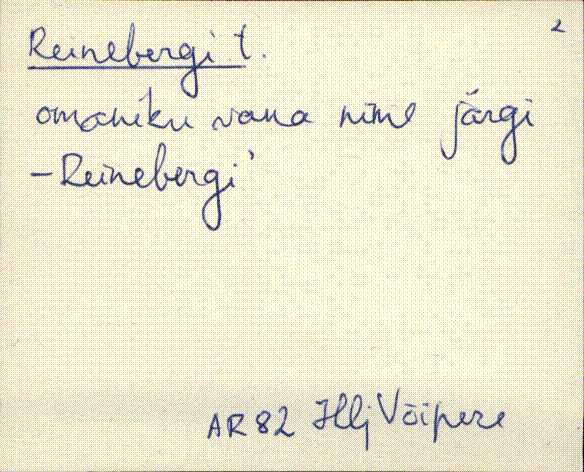 2
Reinebergi t.
omaniku vana nime järgi
- Reinebergi'
AR 82 Hlj Võipere